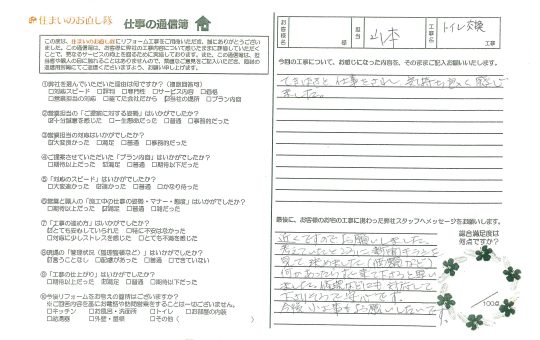 住まいのお直し隊 仕事の通信簿
この度は、住まいのお直し隊にリフォーム工事をご用命いただき、誠にありがとうございました。この通信簿は、お客様に弊社の工事内容について感じたままに評価していただくことで、更なるサービスの向上を図るために実施しております。また、この通信簿は、お客様や職人の目に触れることはありませんので、率直なご意見をご記入いただき、
①弊社を選んでいただいた理由は何ですか?(複数回答可)
□対応スピード □評判 □専門性 □サービス内容 □価格
□営業担当の対応 □建てた会社だから ☑会社の場所 □プラン内容
②営業担当の「ご提案に対する姿勢」はいかがでしたか?
☑十分誠意を感じた □一生懸命だった □普通 □事務的だった
③営業担当の対応はいかがでしたか?
□大変良かった ☑満足 □普通 □事務的だった
④ご提案させていただいた「プラン内容」はいかがでしたか?
□期待以上だった ☑満足 □普通 □期待以下だった
⑤「対応のスピード」はいかがでしたか?
□大変速かった ☑速かった □普通 □かなり待った
⑥営業と職人の「施工中の仕事の姿勢・マナー・態度」はいかがでしたか?
□期待以上だった ☑満足 □普通 □雑だった
⑦「工事の進め方」はいかがでしたか?
☑とても安心していられた □特に不安はなかった
□対応に少しストレスを感じた □とても不満を感じた
⑧現場の「管理状況(整理整頓など)」はいかがでしたか?
☑言うことなし □配慮があった □普通 □できていない
⑨「工事の仕上がり」はいかがでしたか?
□期待以上だった ☑満足 □普通 □期待以下だった
⑩今後リフォームをお考えの箇所はございますか?
※ご回答内容を基にお電話や訪問営業をすることは一切ございません。
□キッチン □お風呂・洗面所 □トイレ □お部屋の内装
□給湯器 □外壁・屋根 □その他( )
お客様名
担当 山本
工事名 トイレ交換 工事
今回の工事について、お感じになった内容を、そのままご記入お願いいたします。
てきぱきと仕事をされ、気持ち良く感じ
ました。
最後に、お客様のお宅の工事に携わった弊社スタッフへメッセージをお願いします。
近くですのでお願いしました。
見て決めました
何かあったらすぐ来て下さると思い
ました。
下さりそうで安心です。
今後小工事もお願いしたいです。
総合満足度は
何点ですか?
/100点